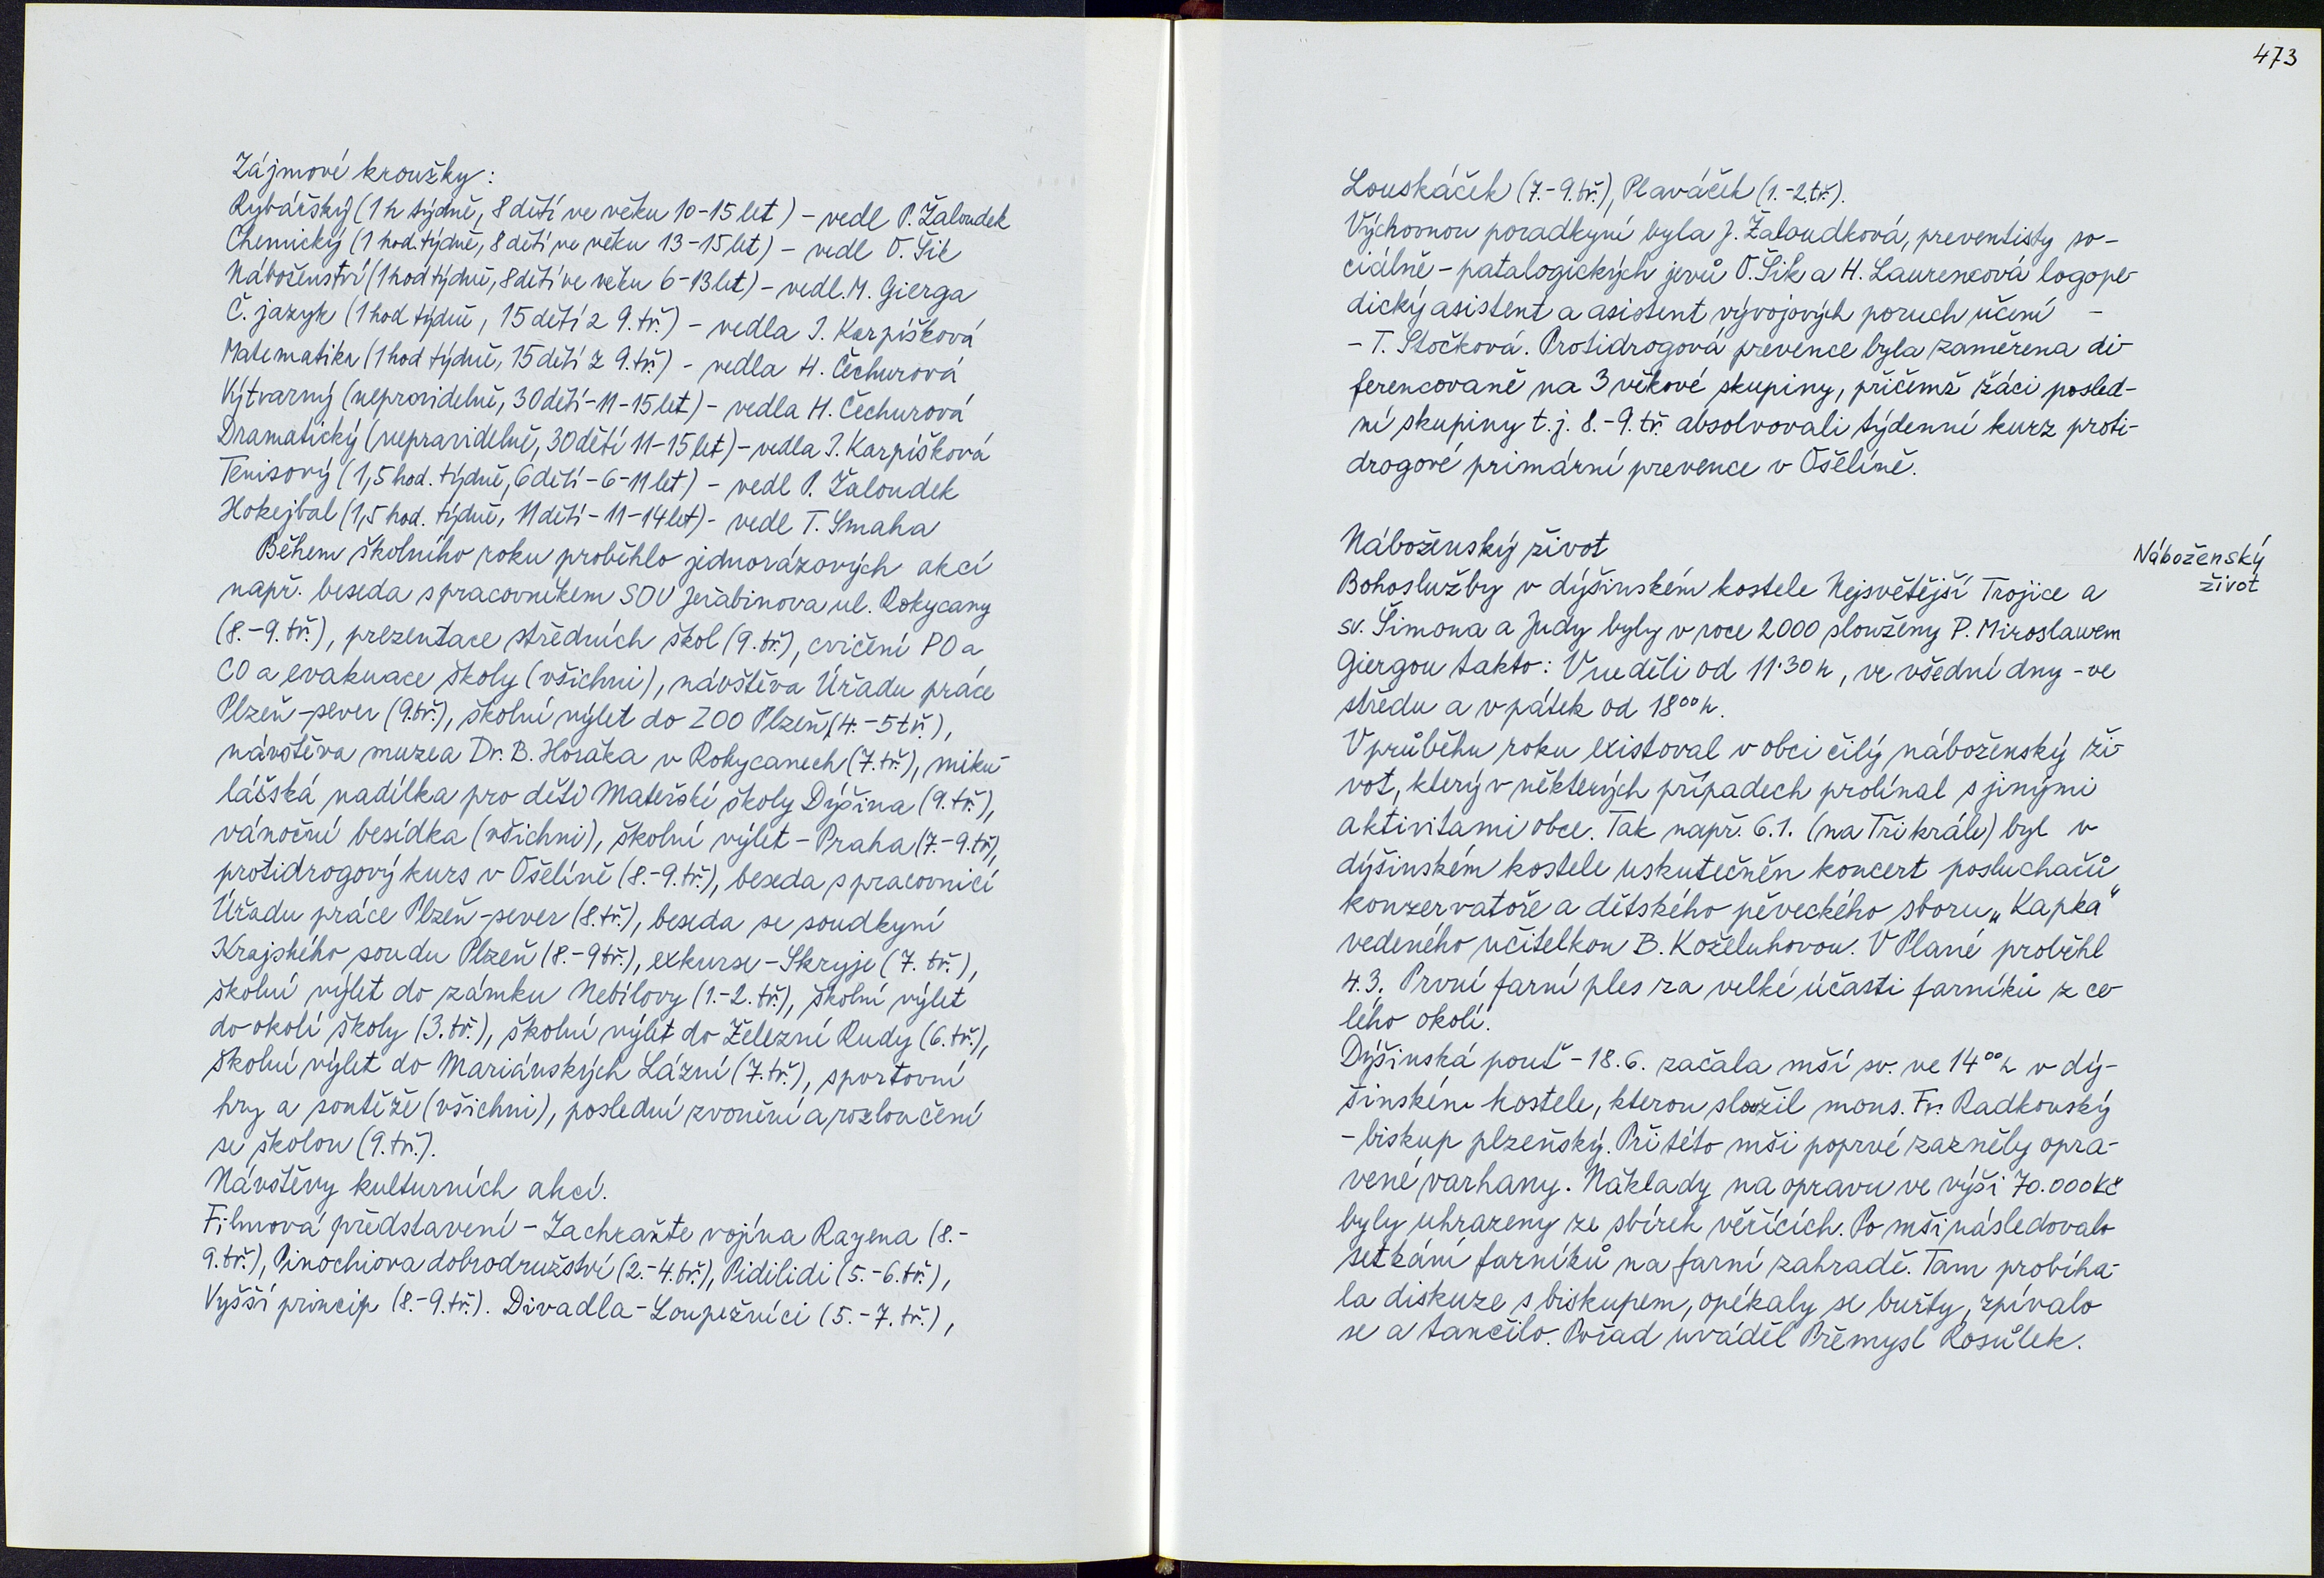 Zájmové kroužky:
Rybářský (1 h týdně, 8 dětí ve věku 10-15 let) - vedl P. Žaloudek
Chemický (1 hod. týdně, 8 dětí ve věku 13-15 let) - vedl O. Šik
Náboženství (1 hod týdně, 8 dětí ve věku 6-13 let) - vedl. M. Gierga
Č. jazyk (1 hod týdně, 15 dětí z 9. tř.) - vedla I. Karpíšková
Matematika (1 hod týdně, 15 dětí z 9. tř.) - vedla H. Čechurová
Výtvarný (nepravidelně, 30 dětí - 11-15 let) - vedla H. Čechurová
Dramatický (nepravidelně, 30 dětí 11-15 let) - vedla I. Karpíšková
Tenisový (1,5 hod. týdně, 6 dětí - 6-11 let) - vedl P. Žaloudek
Hokejbal (1,5 hod. týdně, 11 dětí - 11-14 let) - vedl T. Smaha
Během školního roku proběhlo jednorázových akcí
např. beseda s pracovníkem SOU Jeřabinova ul. Rokycany
(8.-9. tř.), prezentace středních škol (9. tř.), cvičení PO a
CO a evakuace školy (všichni), návštěva Úřadu práce
Plzeň-sever (9. tř.), školní výlet do ZOO Plzeň, (4.-5 tř.),
návštěva muzea Dr. B. Horáka v Rokycanech (7. tř.), miku-
lášská nadílka pro děti Mateřské školy Dýšina (9. tř.),
vánoční besídka (všichni), školní výlet - Praha (7.-9. tř),
protidrogový kurs v Ošelíně (8.-9. tř.), beseda s pracovnicí
Úřadu práce Plzeň-sever (8. tř.), beseda se soudkyní
Krajského soudu Plzeň (8.-9 tř.), exkurse - Skryje (7. tř.),
školní výlet do zámku Nebílovy (1.-2. tř.), školní výlet
do okolí školy (3. tř.), školní výlet do Železné Rudy (6. tř.),
školní výlet do Mariánských Lázní (7. tř.), sportovní
hry a soutěže (všichni), poslední zvonění a rozloučení
se školou (9. tř.).
Návštěvy kulturních akcí.
Filmová představení - Zachraňte vojína Rayena (8.-
9. tř.), Pinochiova dobrodružství (2.-4. tř.), Pidilidi (5.-6. tř.),
Vyšší princip (8.-9. tř.). Divadla - Loupežníci (5.-7. tř.),
473
Louskáček (7.-9. tř.), Plaváček (1.-2. tř.).
Výchovnou poradkyní byla J. Žaloudková, preventisty so-
ciálně-patalogických jevů O. Šik a H. Laurencová logope-
dický asistent a asistent vývojových poruch učení -
- T. Stočková. Protidrogová prevence byla zaměřena di-
ferencovaně na 3 věkové skupiny, přičemž žáci posled-
ní skupiny t. j. 8.-9. tř. absolvovali týdenní kurz proti-
drogové primární prevence v Ošelíně.
Náboženský život
Náboženský
život
Bohoslužby v dýšinském kostele Nejsvětější Trojice a
sv. Šimona a Judy byly v roce 2000 slouženy P. Miroslawem
Giergou takto: V neděli od 11.30 h, ve všední dny - ve
středu a v pátek od 18⁰⁰ h.
V průběhu roku existoval v obci čilý náboženský ži-
vot, který v některých případech prolínal s jinými
aktivitami obce. Tak např. 6.1. (na Tři krále) byl v
dýšinském kostele uskutečněn koncert posluchačů
konzervatoře a dětského pěveckého sboru „Kapka"
vedeného učitelkou B. Koželuhovou. V Plané proběhl
4.3. První farní ples za velké účasti farníků z ce-
lého okolí.
Dýšinská pouť - 18.6. začala mší sv. ve 14⁰⁰ h v dý-
šinském kostele, kterou sloužil mons. Fr. Radkovský
- biskup plzeňský. Při této mši poprvé zazněly opra-
vené varhany. Náklady na opravu ve výši 70.000 Kč
byly uhrazeny ze sbírek věřících. Po mši následovalo
setkání farníků na farní zahradě. Tam probíha-
la diskuze s biskupem, opékaly se buřty, zpívalo
se a tančilo. Pořad uváděl Přemysl Kosůlek.